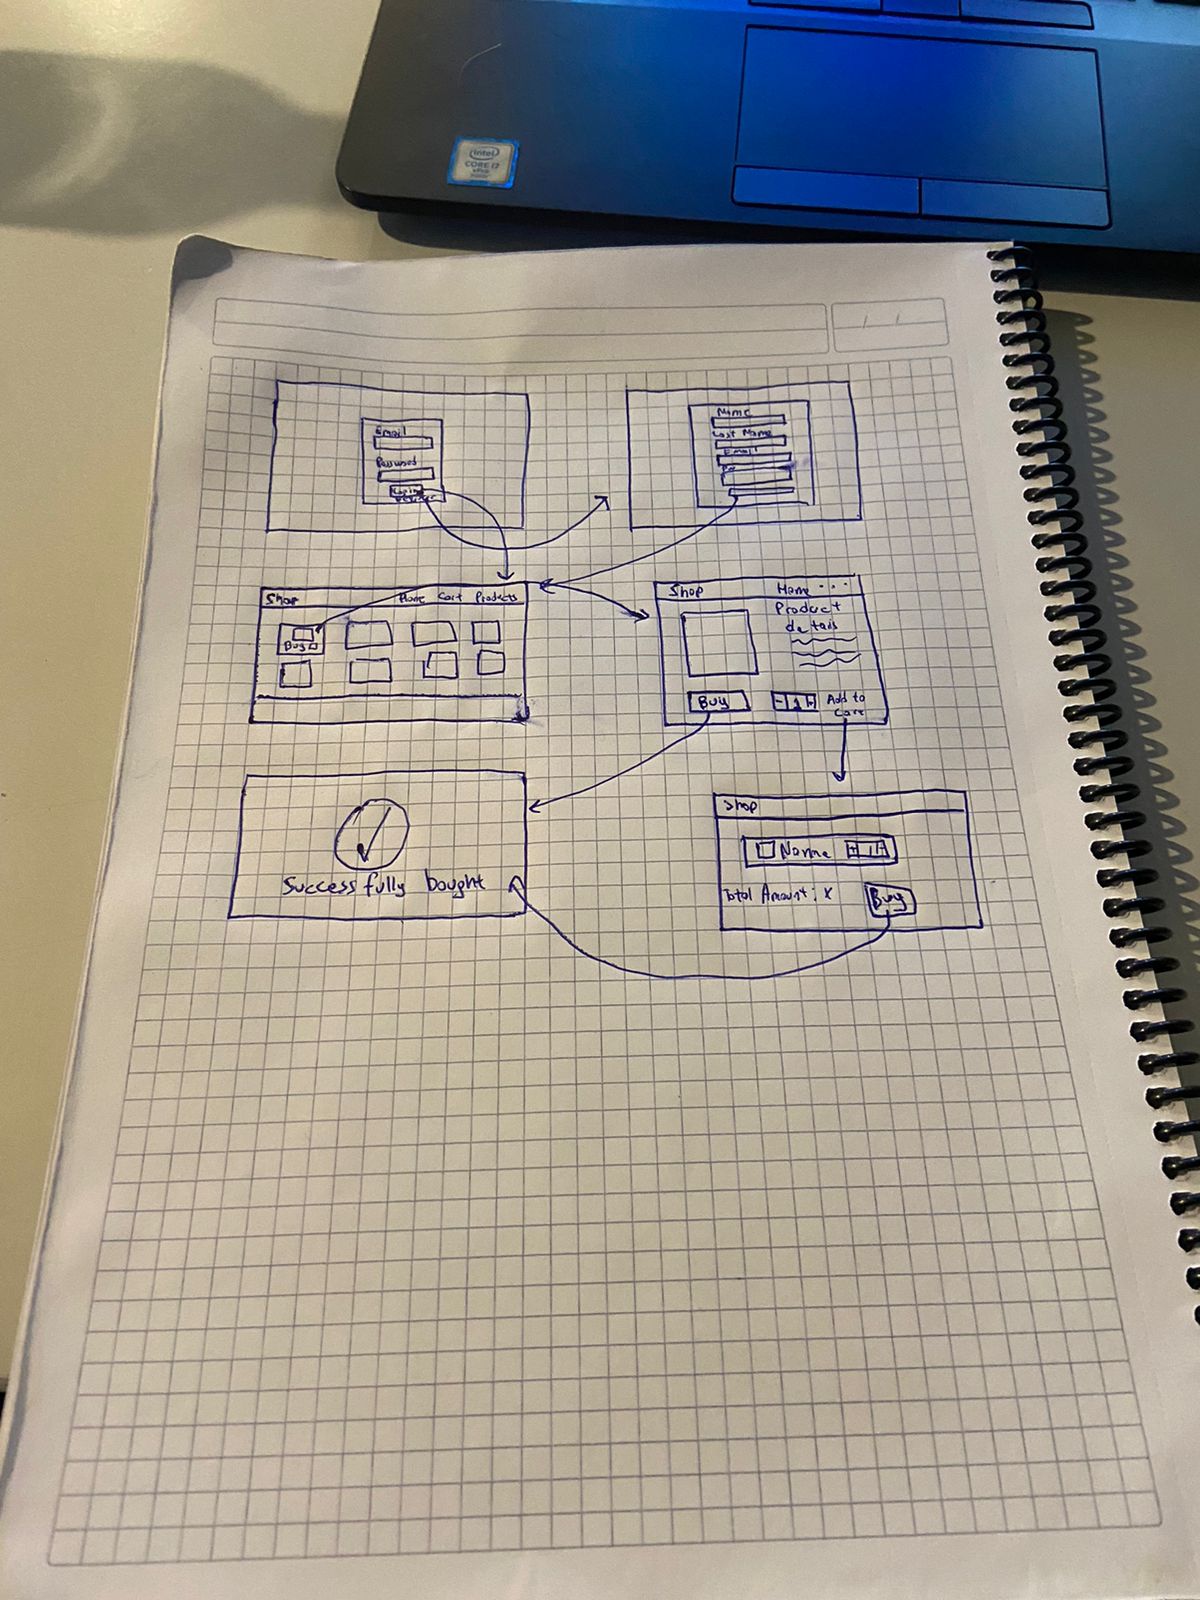 intel
CORE i7
vPro
Email
Password
Login
Register
Name
Last Name
Email
Pa
Shop
Home Cart Products
Buy
Shop
Home ...
Product
details
Buy
- 1 +
Add to
Cart
Successfully bought
Shop
Name
+ 1 +
Total Amount: X
Buy